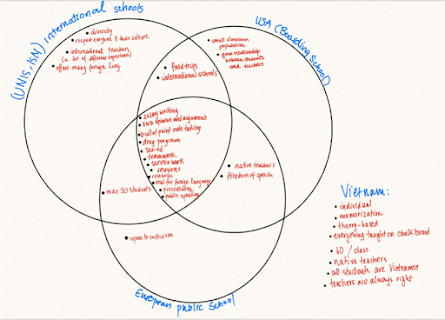 (UNIS, ISN) International schools
• diversity
• respect everyone & their culture
• international teachers
(a lot of different experiences)
• offers many foreign lang.
USA (Boarding School)
• small classroom
population
• good relationship
between students
and teachers
• field trips
• international schools
• essay writing
• own opinion and argument
• bullet point note taking
• drug program
• sex-ed
• teamwork
• service work
• research
• presenting
• public speaking
• max 30 students
• native teachers
freedom of speech
• open to criticism
European public School
Vietnam:
• individual
• memorization
• theory-based
• everything taught on chalkboard
• 60 / class
• native teachers
• all students are Vietnamese
• teachers are always right